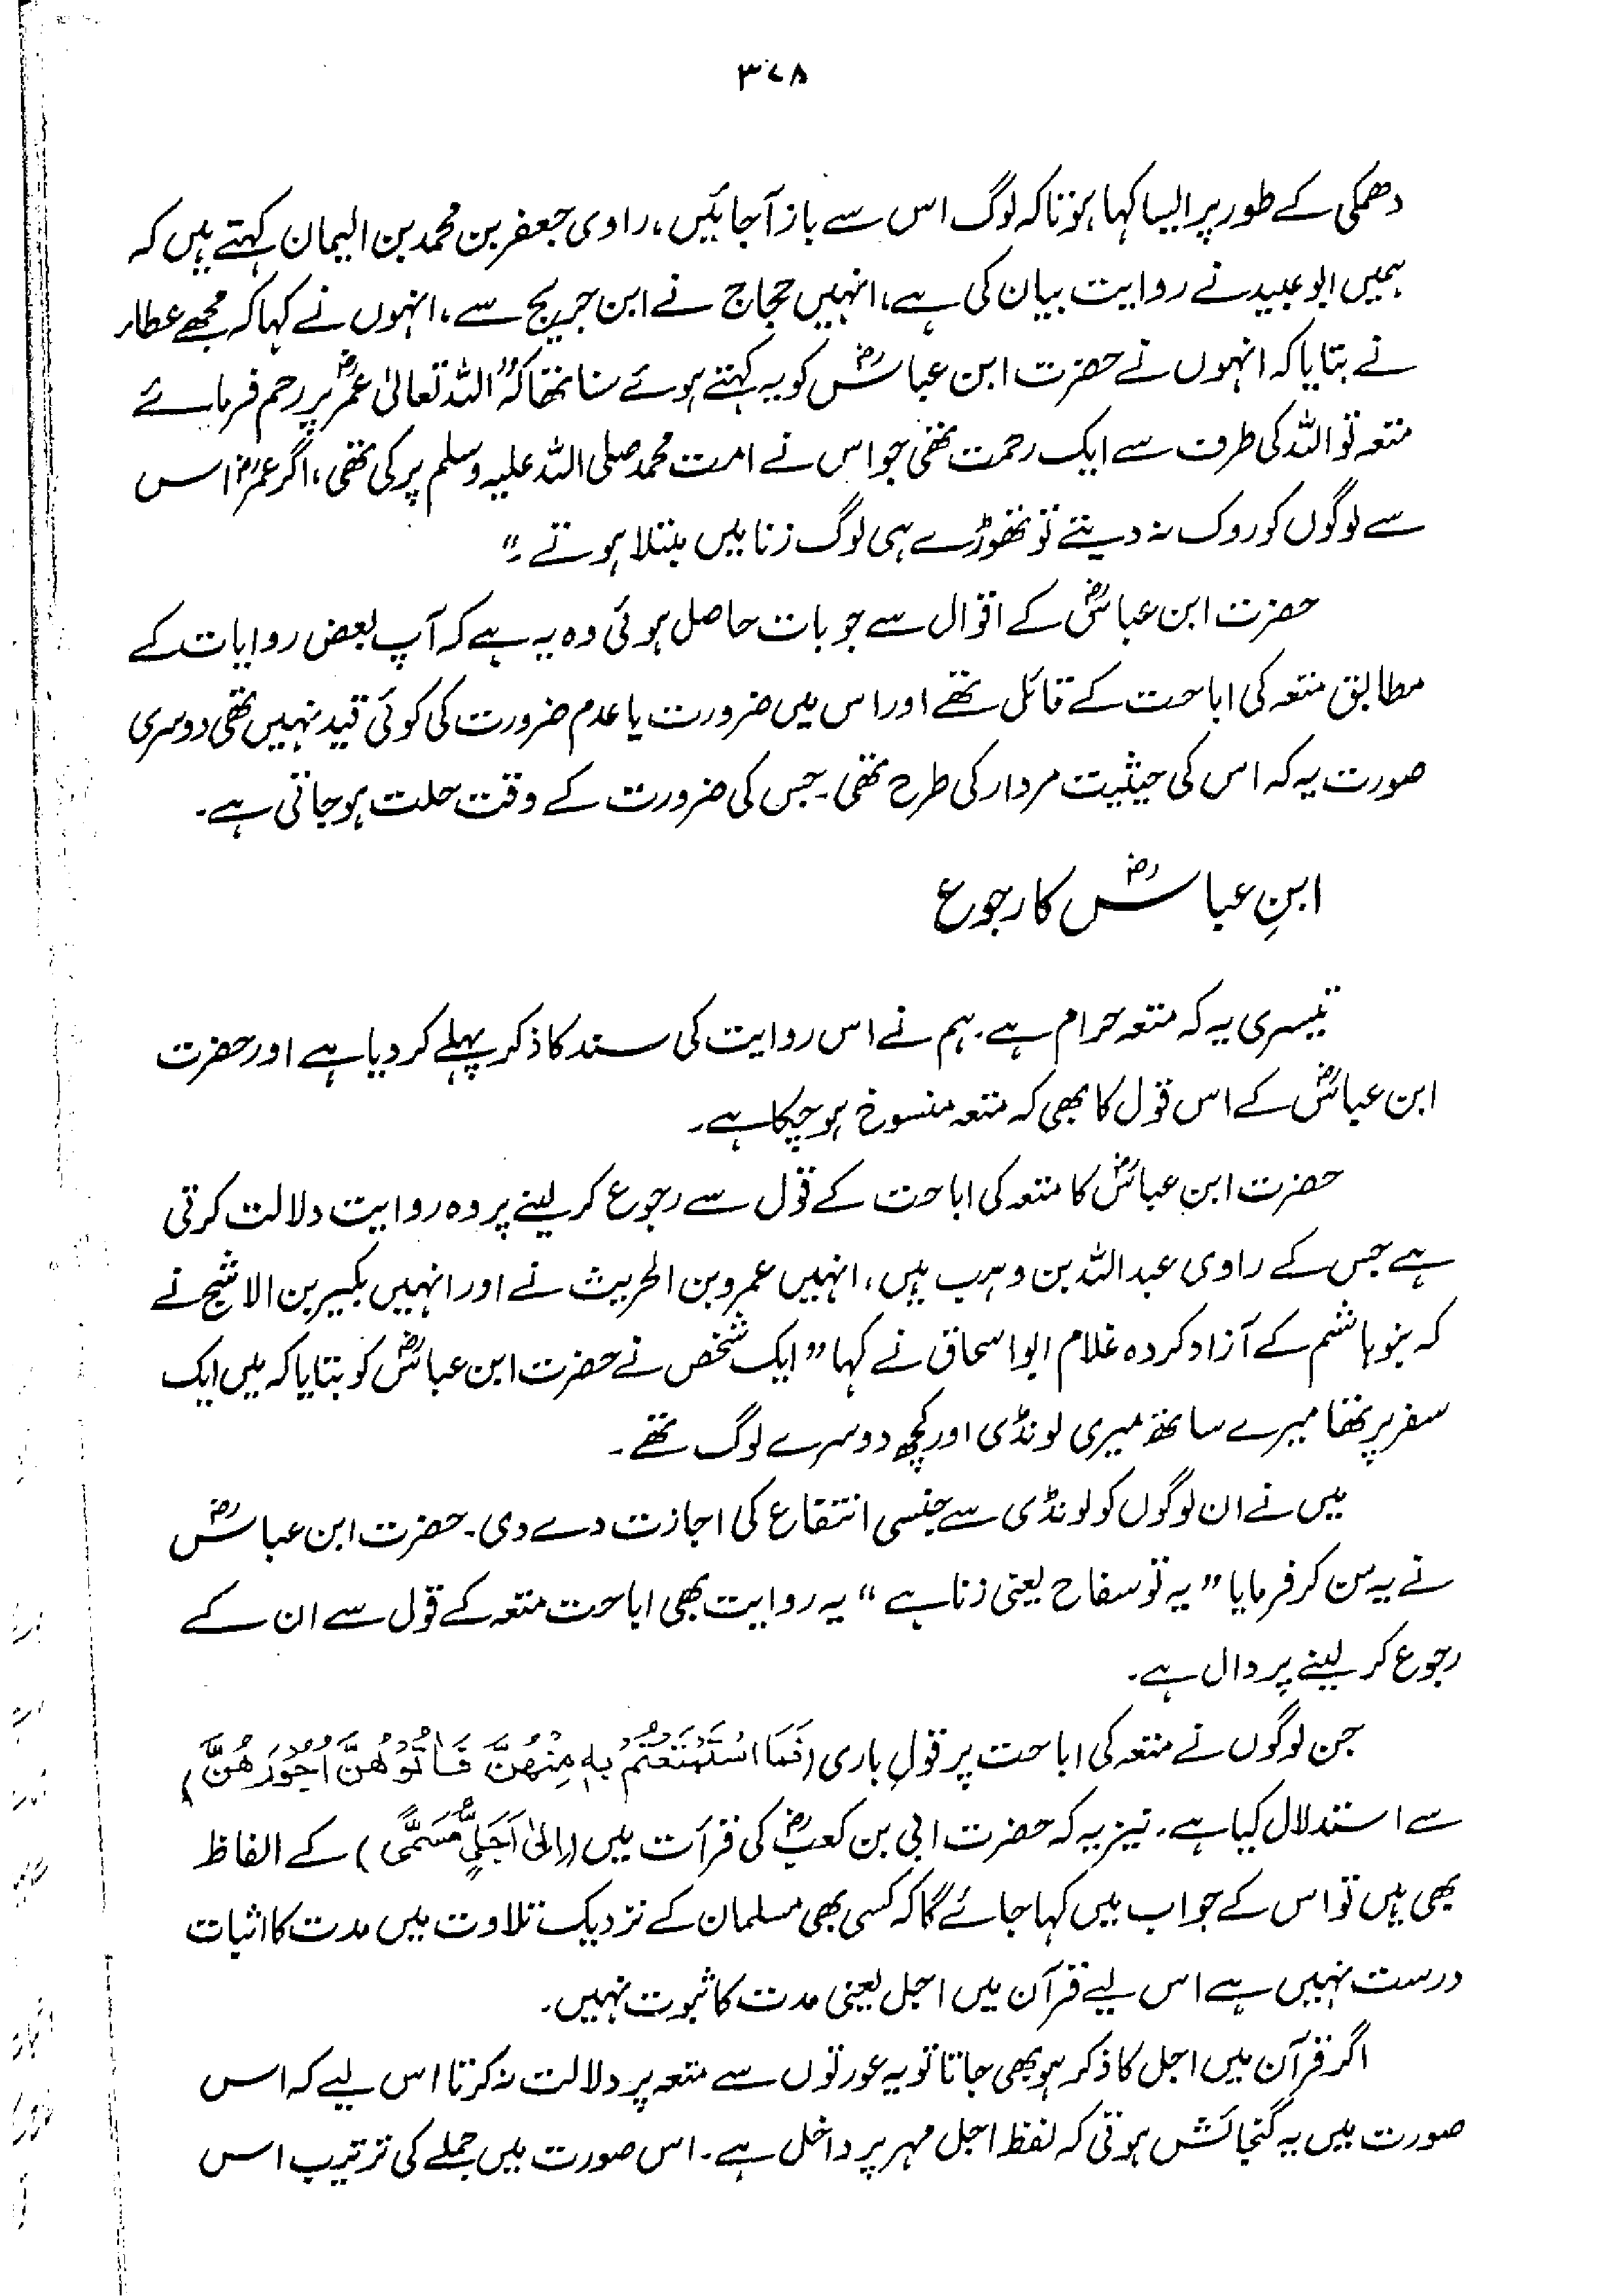 ۳۷۸
دھمکی کے طور پر ایسا کہا ہو تاکہ لوگ اس سے باز آجائیں، راوی جعفر بن محمد بن الیمان کہتے ہیں کہ
ہمیں ابو عبید نے روایت بیان کی ہے، انہیں حجاج نے ابن جریج سے، انہوں نے کہا کہ مجھے عطاء
نے بتایا کہ انہوں نے حضرت ابن عباسؓ کو یہ کہتے ہوئے سنا تھا کہ "اللہ تعالیٰ عمرؓ پر رحم فرمائے
متعہ تو اللہ کی طرف سے ایک رحمت تھی جو اس نے امت محمد صلی اللہ علیہ وسلم پر کی تھی، اگر عمرؓ اس
سے لوگوں کو روک نہ دیتے تو تھوڑے ہی لوگ زنا میں مبتلا ہوتے۔"
حضرت ابن عباسؓ کے اقوال سے جو بات حاصل ہوئی وہ یہ ہے کہ آپ بعض روایات کے
مطابق متعہ کی اباحت کے قائل تھے اور اس میں ضرورت یا عدم ضرورت کی کوئی قید نہیں تھی دوسری
صورت یہ کہ اس کی حیثیت مردار کی طرح تھی۔ جس کی ضرورت کے وقت حلت ہو جاتی ہے۔
ابنِ عباسؓ کا رجوع
تیسری یہ کہ متعہ حرام ہے۔ ہم نے اس روایت کی سند کا ذکر پہلے کر دیا ہے اور حضرت
ابن عباسؓ کے اس قول کا بھی کہ متعہ منسوخ ہو چکا ہے۔
حضرت ابن عباسؓ کا متعہ کی اباحت کے قول سے رجوع کر لینے پر وہ روایت دلالت کرتی
ہے جس کے راوی عبد اللہ بن وہب ہیں، انہیں عمرو بن الحریث نے اور انہیں بکیر بن الاشج نے
کہ بنو ہاشم کے آزاد کردہ غلام ابو اسحاق نے کہا "ایک شخص نے حضرت ابن عباسؓ کو بتایا کہ میں ایک
سفر پر تھا میرے ساتھ میری لونڈی اور کچھ دوسرے لوگ تھے۔
میں نے ان لوگوں کو لونڈی سے جنسی انتفاع کی اجازت دے دی۔ حضرت ابن عباسؓ
نے یہ سن کر فرمایا "یہ تو سفاح یعنی زنا ہے" یہ روایت بھی اباحت متعہ کے قول سے ان کے
رجوع کر لینے پر دال ہے۔
جن لوگوں نے متعہ کی اباحت پر قولِ باری (فَمَا اسْتَمْتَعْتُمْ بِهٖ مِنْهُنَّ فَاٰتُوْهُنَّ اُجُوْرَهُنَّ)
سے استدلال کیا ہے۔ نیز یہ کہ حضرت ابی بن کعبؓ کی قرآت میں (اِلٰى اَجَلٍ مُّسَمًّى) کے الفاظ
بھی ہیں تو اس کے جواب میں کہا جائے گا کہ کسی بھی مسلمان کے نزدیک تلاوت میں مدت کا اثبات
درست نہیں ہے اس لیے قرآن میں اجل یعنی مدت کا ثبوت نہیں۔
اگر قرآن میں اجل کا ذکر ہو بھی جاتا تو یہ عورتوں سے متعہ پر دلالت نہ کرتا اس لیے کہ اس
صورت میں یہ گنجائش ہوتی کہ لفظ اجل مہر پر داخل ہے۔ اس صورت میں جملے کی ترتیب اس